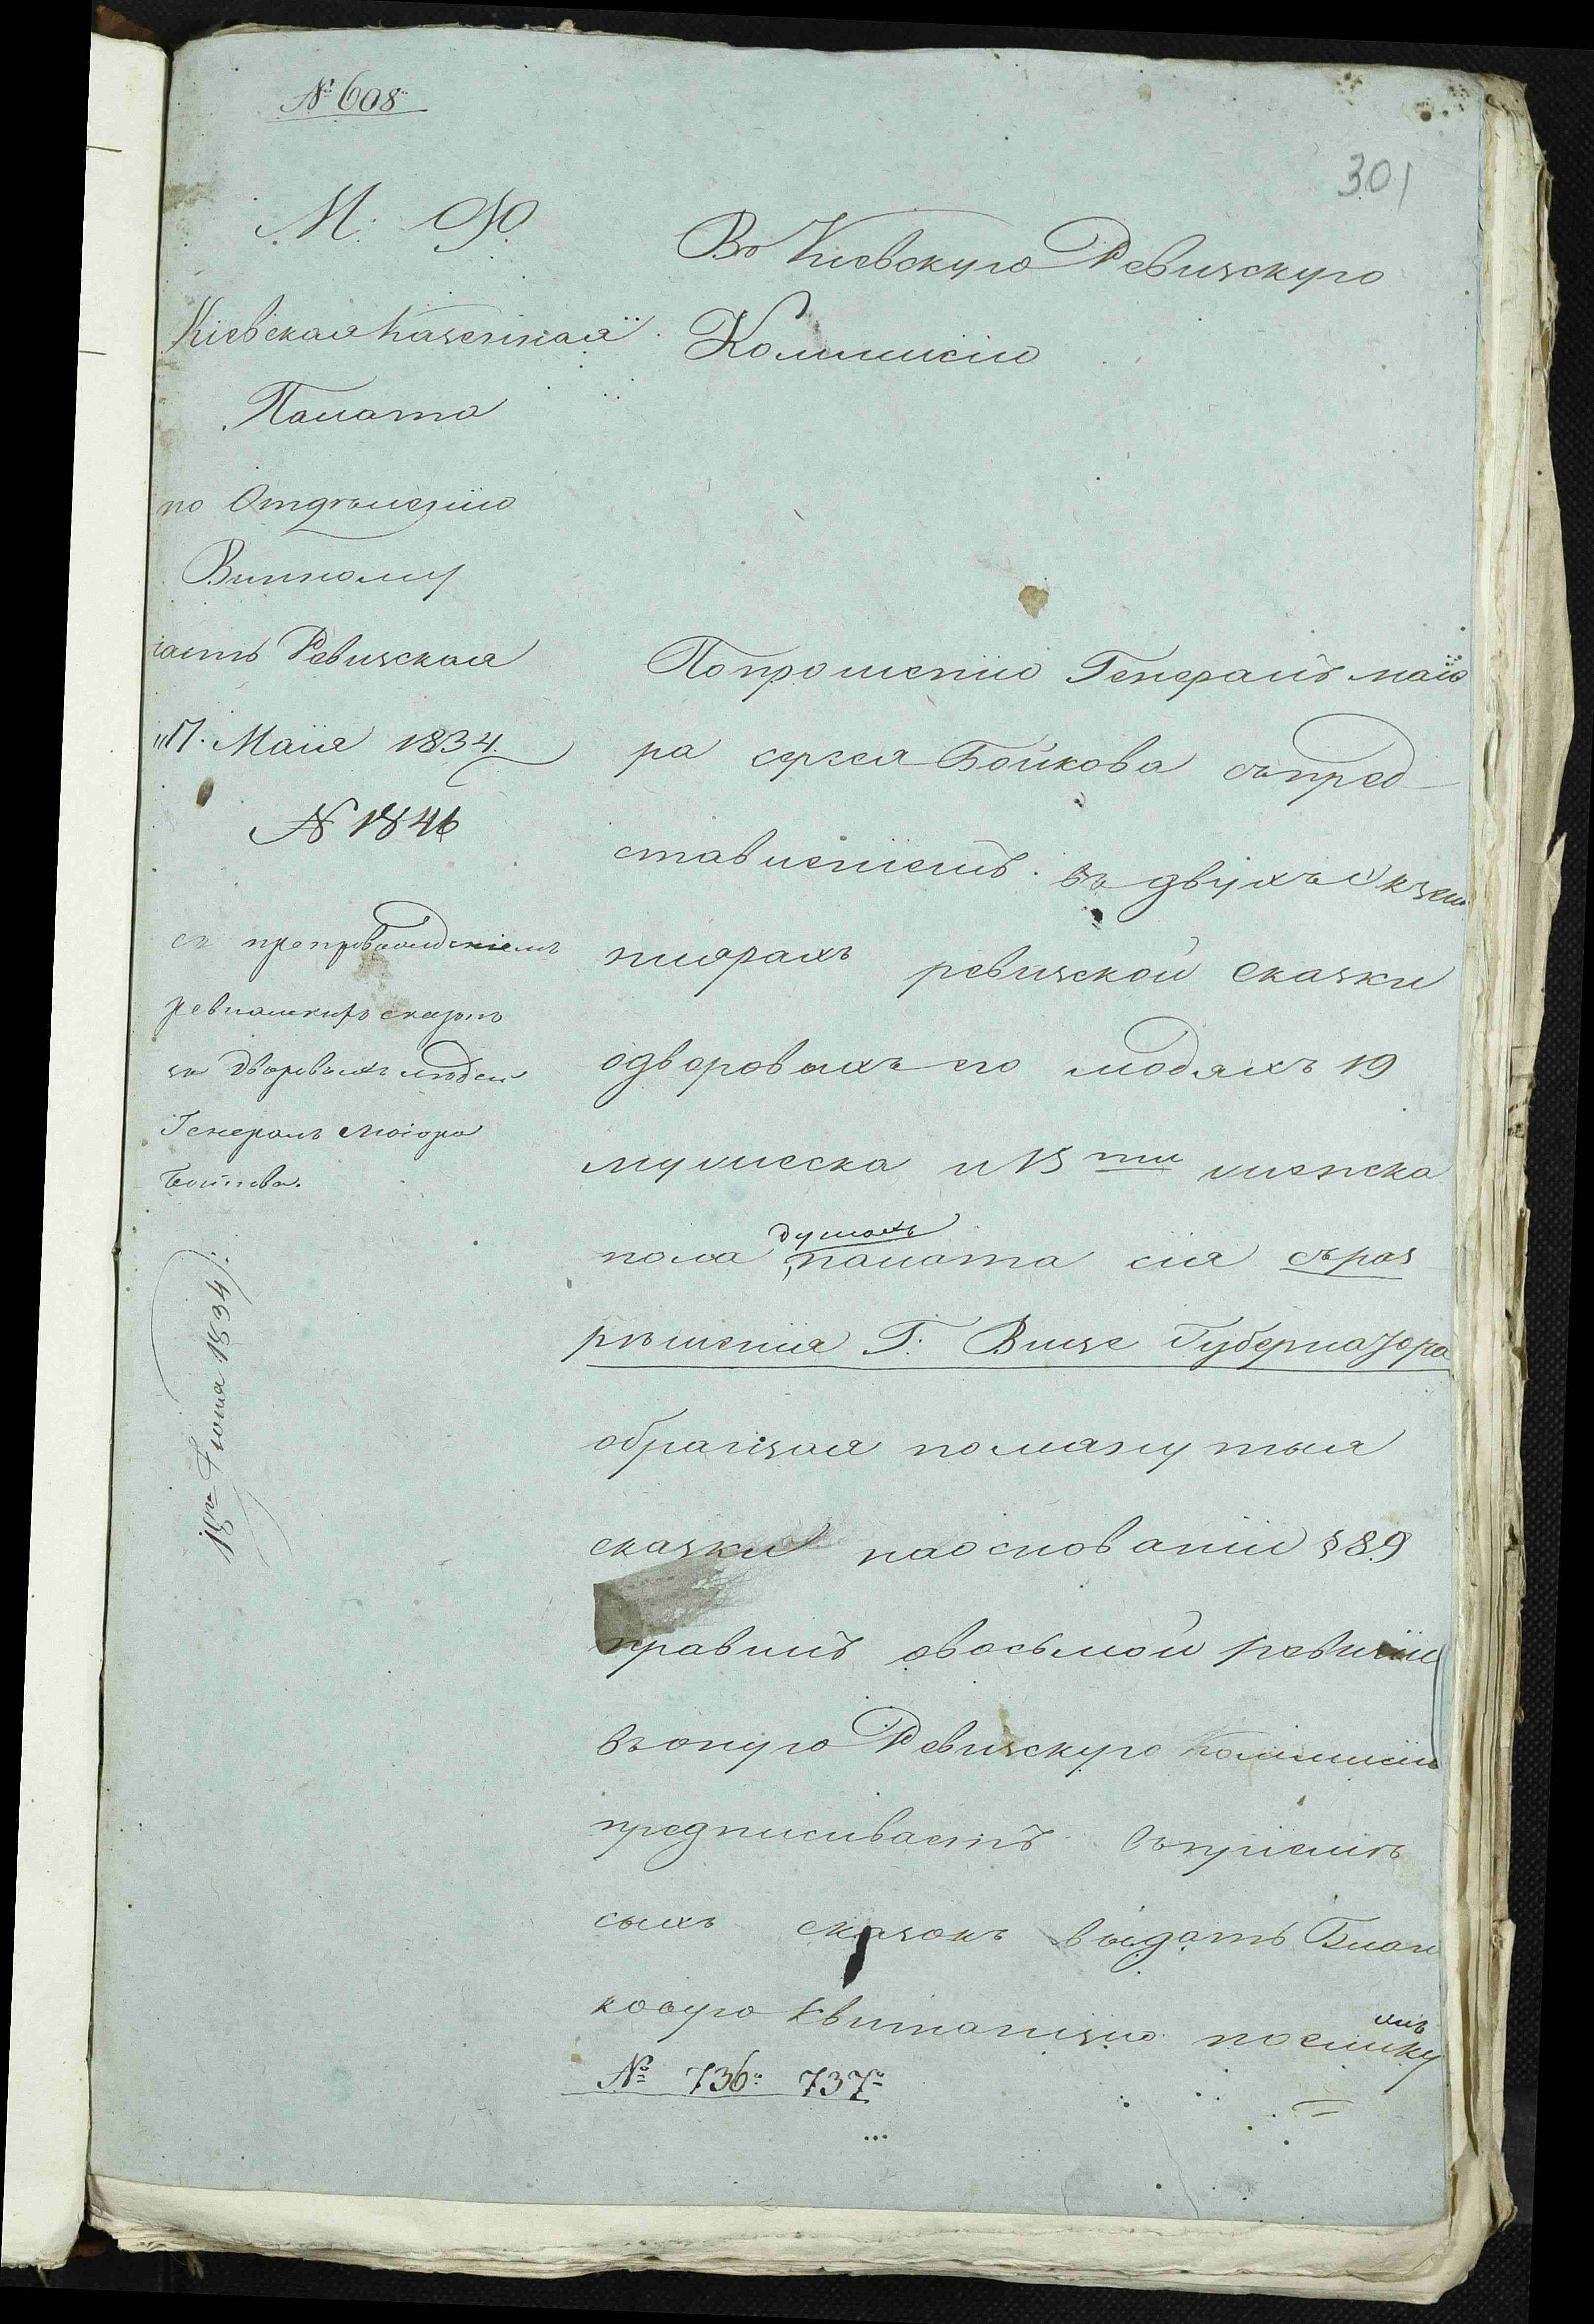 № 608
301
М. Ф.
Кіевская Казенная
Палата
по Отдѣленію
Винному
часть Ревизская
"17. Маія 1834.
№ 1846
съ препровожденіемъ
ревизскихъ сказокъ
за дворовыхъ людей
Генералъ Маіора
Бойкова.
18го Іюня 1834
Въ Кіевскую Ревизскую
Коммисію
По прошенію Генералъ маіо
ра Бойкова съ пред
ставленіемъ въ двухъ экзем
плярахъ ревизской сказки
о дворовыхъ его людяхъ 19
мужеска и 15ти женска
пола душахъ палата сія съ раз
рѣшенія Г. Вице Губернатора
обращая помянутыя
сказки на основаніи § 89
правилъ о восьмой ревизіи
въ оную Ревизскую Коммисію
предписываетъ въ пріемѣ
сихъ сказокъ выдать Блан
ковую Квитанцію
№ 736. 737.